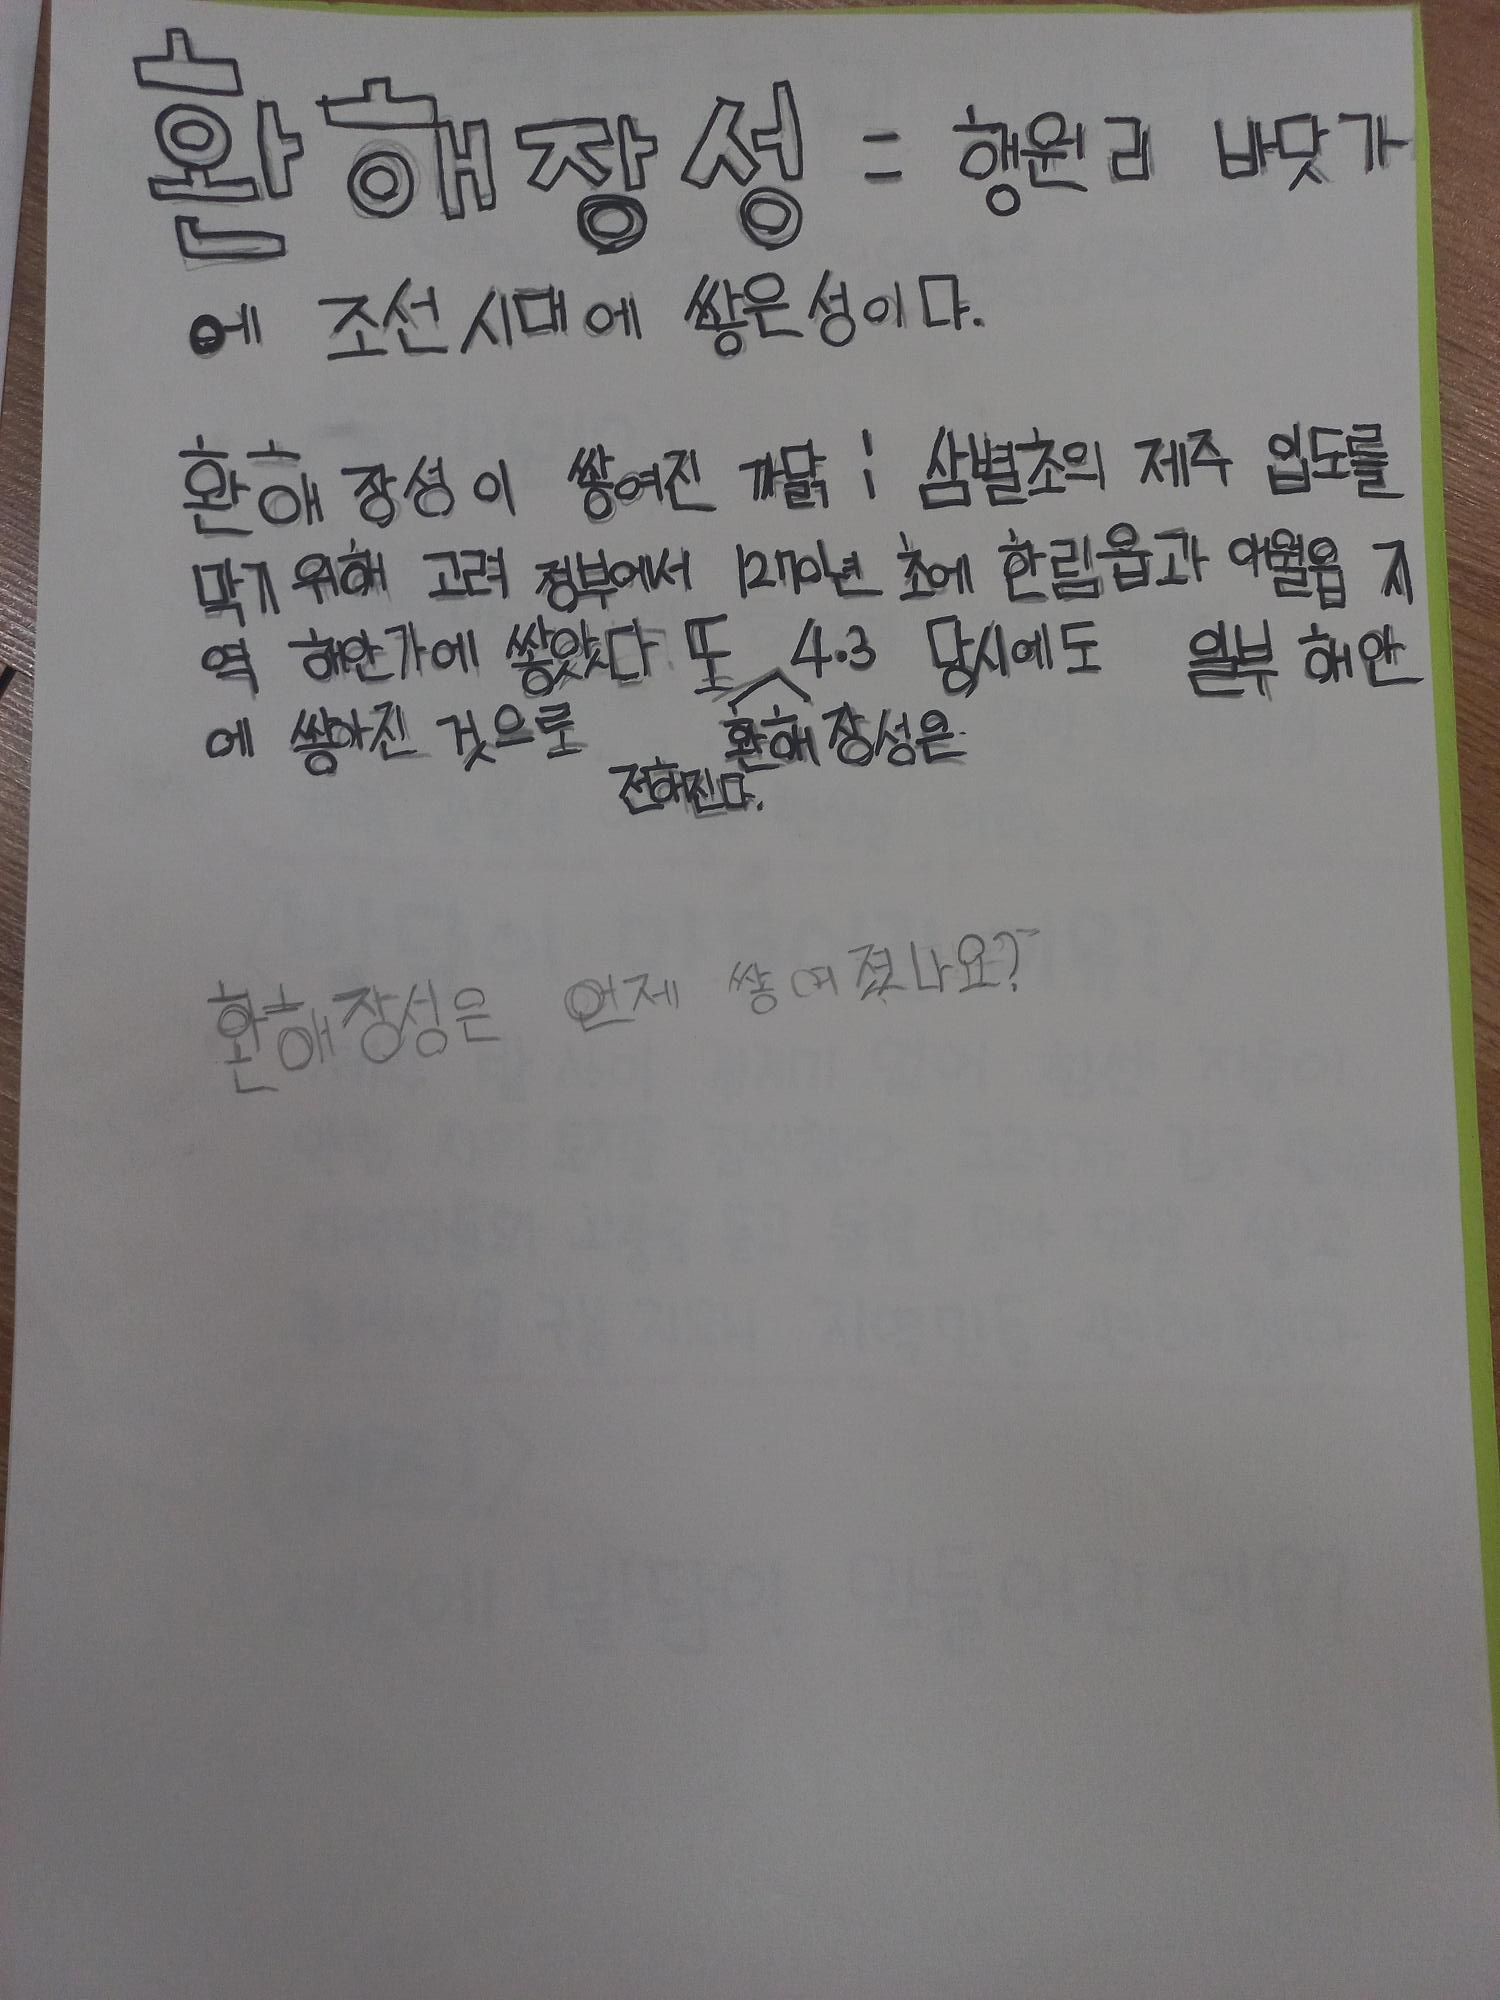 환해장성 = 행원리 바닷가
에 조선시대에 쌓은성이다.
환해장성이 쌓여진 까닭 : 삼별초의 제주 입도를
막기위해 고려 정부에서 1270년 초에 한림읍과 애월읍 지
역 해안가에 쌓았다 또 4.3 당시에도 일부 해안
에 쌓아진 것으로 환해장성은
전해진다.
환해장성은 언제 쌓여졌나요?